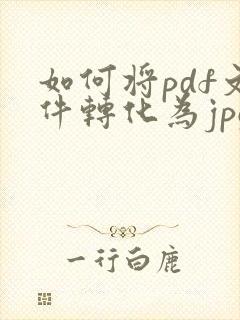 如何将pdf文
件轉化為jpg
一行白鹿